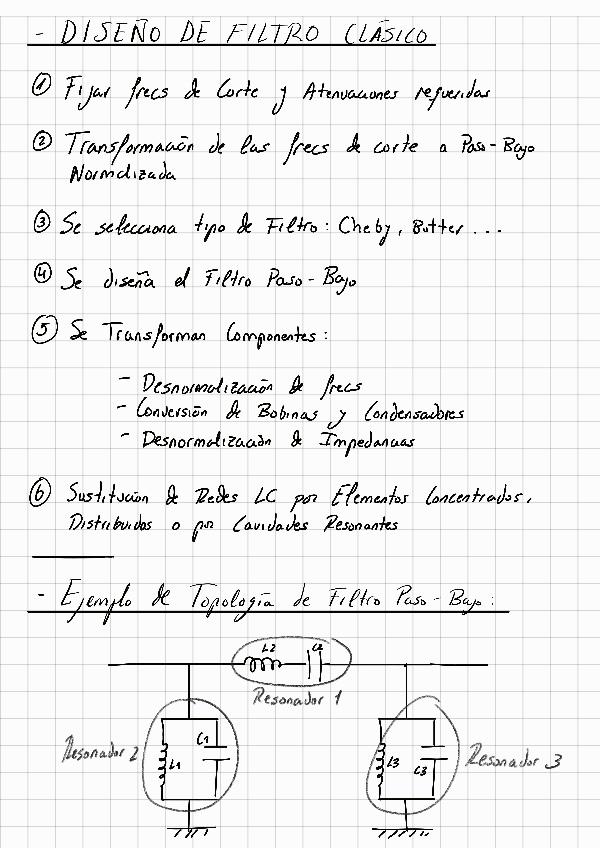 - DISEÑO DE FILTRO CLÁSICO
① Fijar frecs de Corte y Atenuaciones requeridas
② Transformación de las frecs de corte a Paso-Bajo
Normalizada
③ Se selecciona tipo de Filtro: Cheby, Butter ...
④ Se diseña el Filtro Paso-Bajo
⑤ Se Transforman Componentes:
- Desnormalización de frecs
- Conversión de Bobinas y Condensadores
- Desnormalización de Impedancias
⑥ Sustitución de Redes LC por Elementos Concentrados,
Distribuidos o por Cavidades Resonantes
- Ejemplo de Topología de Filtro Paso-Bajo:
L2 C2
Resonador 1
Resonador 2 L1 C1
L3 C3 Resonador 3